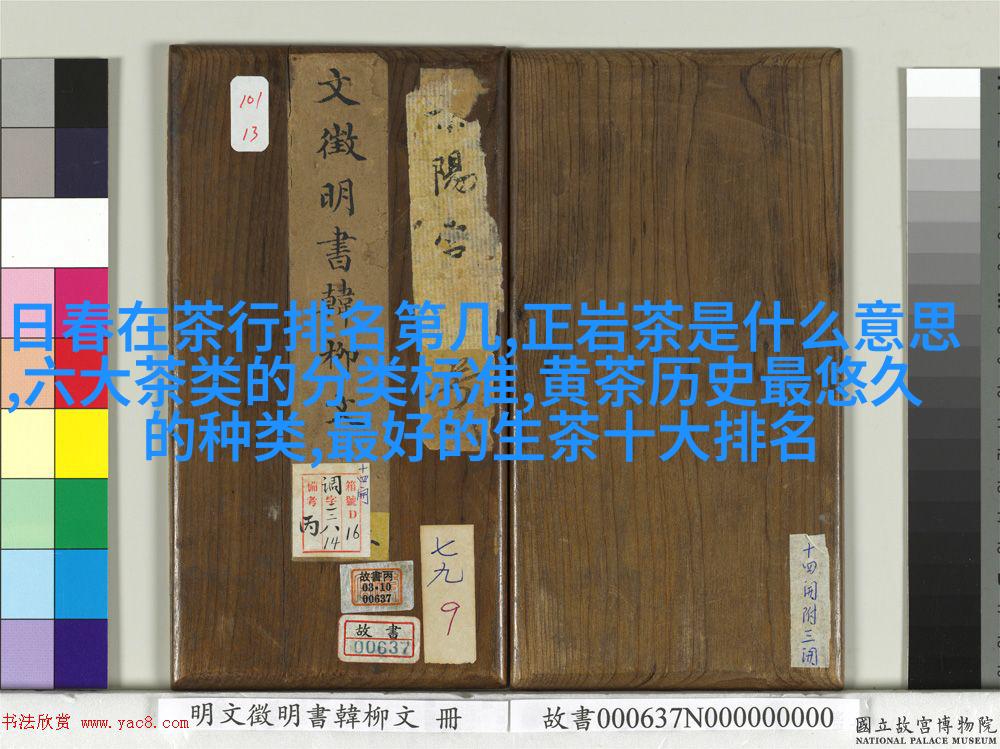 日春在茶行排名第几,正岩茶是什么意思
,六大茶类的分类标准,黄茶历史最悠久
的种类,最好的生茶十大排名
101
13
文徵明書韓柳文
陽宫
十四開
箱號D16
調字三八14
備考丙
故書丙
03·10
00637
故書
00637
七九
9
十四開附三開
明文徵明書韓柳文 冊
故書000637N000000000
國立故宮博物院
NATIONAL PALACE MUSEUM
书法欣赏 www.yac8.com